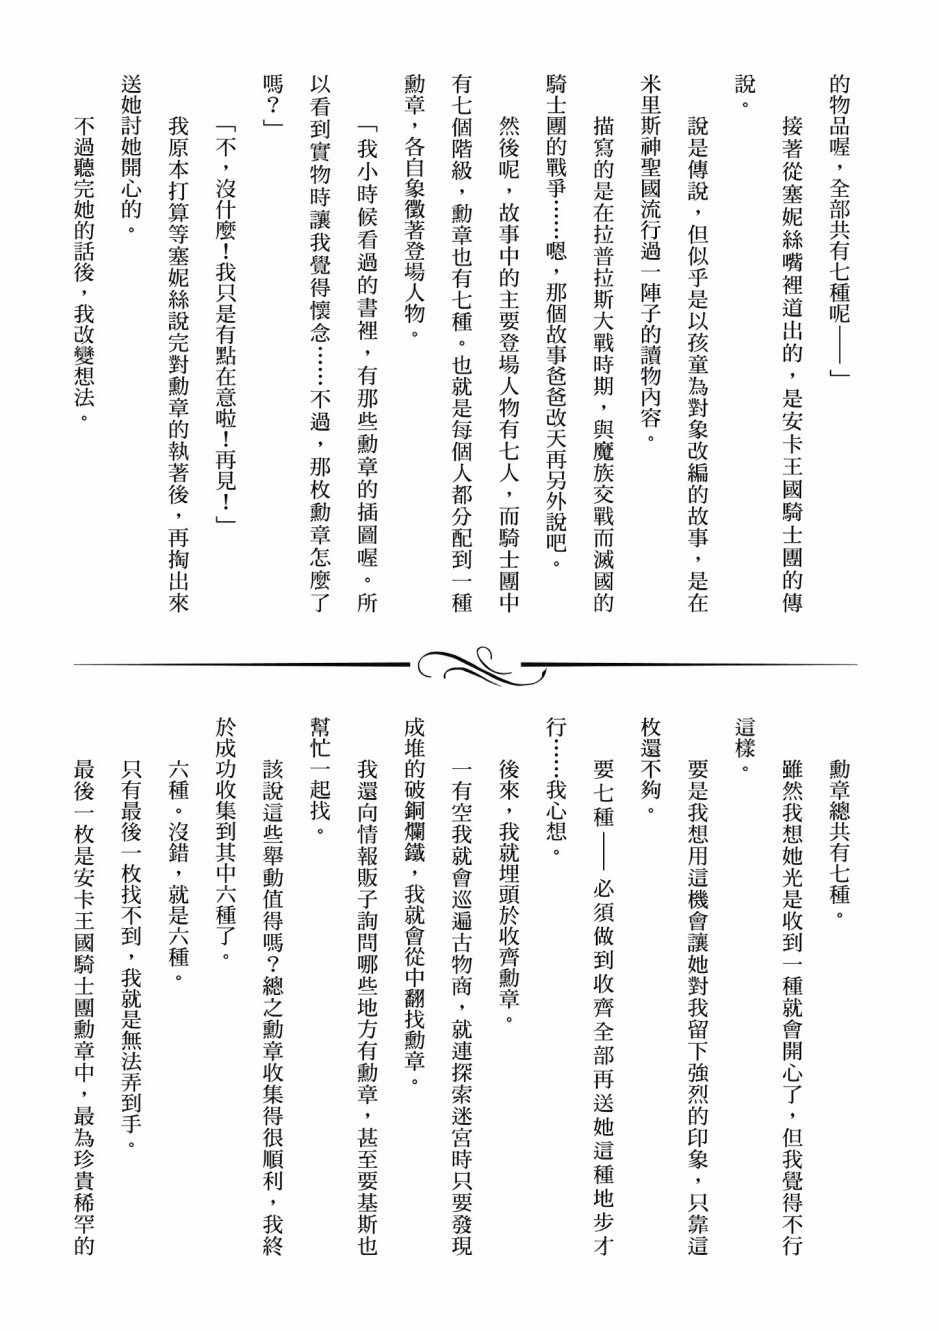 的物品喔，全部共有七種呢——」
接著從塞妮絲嘴裡道出的，是安卡王國騎士團的傳
說。
說是傳說，但似乎是以孩童為對象改編的故事，是在
米里斯神聖國流行過一陣子的讀物內容。
描寫的是在拉普拉斯大戰時期，與魔族交戰而滅國的
騎士團的戰爭……嗯，那個故事爸爸改天再另外說吧。
然後呢，故事中的主要登場人物有七人，而騎士團中
有七個階級，勳章也有七種。也就是每個人都分配到一種
勳章，各自象徵著登場人物。
「我小時候看過的書裡，有那些勳章的插圖喔。所
以看到實物時讓我覺得懷念……不過，那枚勳章怎麼了
嗎？」
「不，沒什麼！我只是有點在意啦！再見！」
我原本打算等塞妮絲說完對勳章的執著後，再掏出來
送她討她開心的。
不過聽完她的話後，我改變想法。
勳章總共有七種。
雖然我想她光是收到一種就會開心了，但我覺得不行
這樣。
要是我想用這機會讓她對我留下強烈的印象，只靠這
枚還不夠。
要七種——必須做到收齊全部再送她這種地步才
行……我心想。
後來，我就埋頭於收齊勳章。
一有空我就會巡遍古物商，就連探索迷宮時只要發現
成堆的破銅爛鐵，我就會從中翻找勳章。
我還向情報販子詢問哪些地方有勳章，甚至要基斯也
幫忙一起找。
該說這些舉動值得嗎？總之勳章收集得很順利，我終
於成功收集到其中六種了。
六種。沒錯，就是六種。
只有最後一枚找不到，我就是無法弄到手。
最後一枚是安卡王國騎士團勳章中，最為珍貴稀罕的